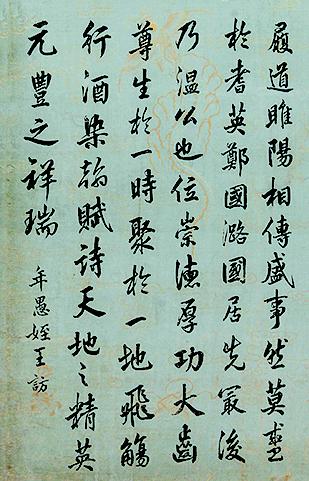 履道睢陽相傳盛事然莫盛
於耆英鄭國潞國居先冣後
乃温公也位崇德厚功大齒
尊生於一時聚於一地飛觴
行酒染翰賦詩天地之精英
元豐之祥瑞
年愚姪王訪